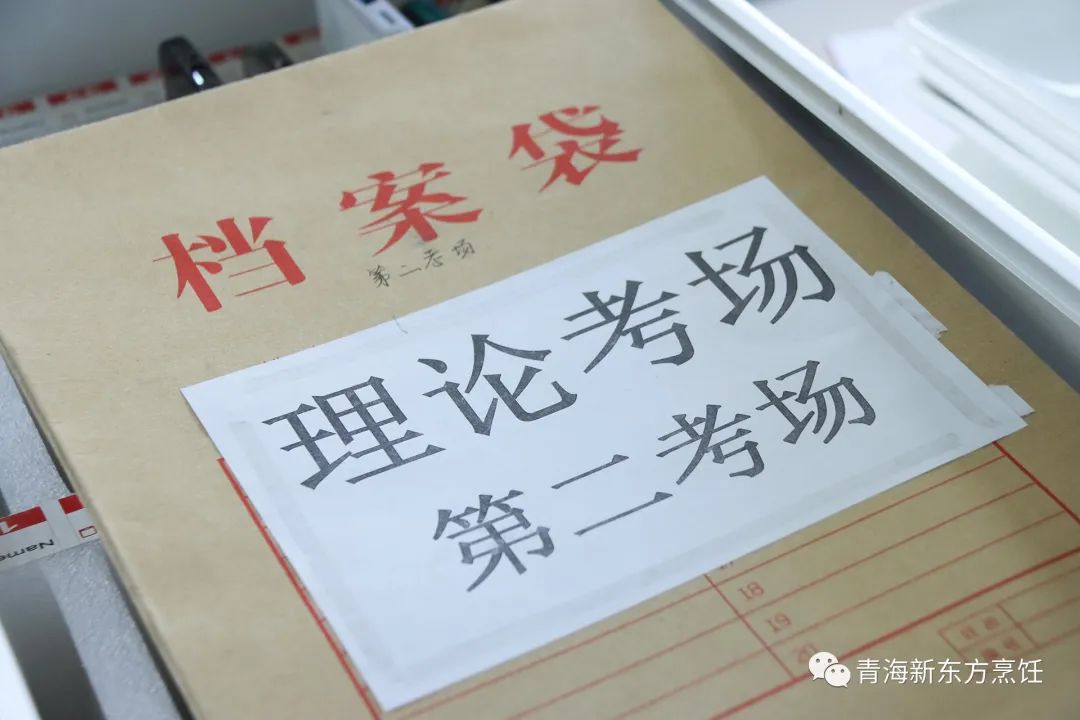 档案袋
第二考场
理论考场
第二考场
18
19
20
Name
青海新东方烹饪